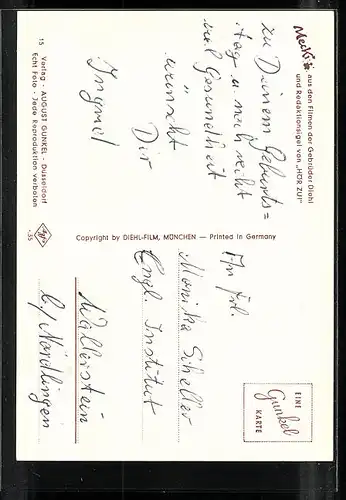 Mecki aus den Filmen der Gebrüder Diehl
und Redaktionsigel von „HÖR ZU!"
zu Deinem Geburts=
tag u. noch recht
viel Gesundheit
wünscht
Dir
Ingrid
15 Verlag - AUGUST GUNKEL - Düsseldorf
Echt Foto - Jede Reproduktion verboten
Agfa
-55
Copyright by DIEHL-FILM, MÜNCHEN — Printed in Germany
EINE
Gunkel
KARTE
An Frl.
Monika Scheller
Engl. Institut
Wallerstein
b/ Nördlingen